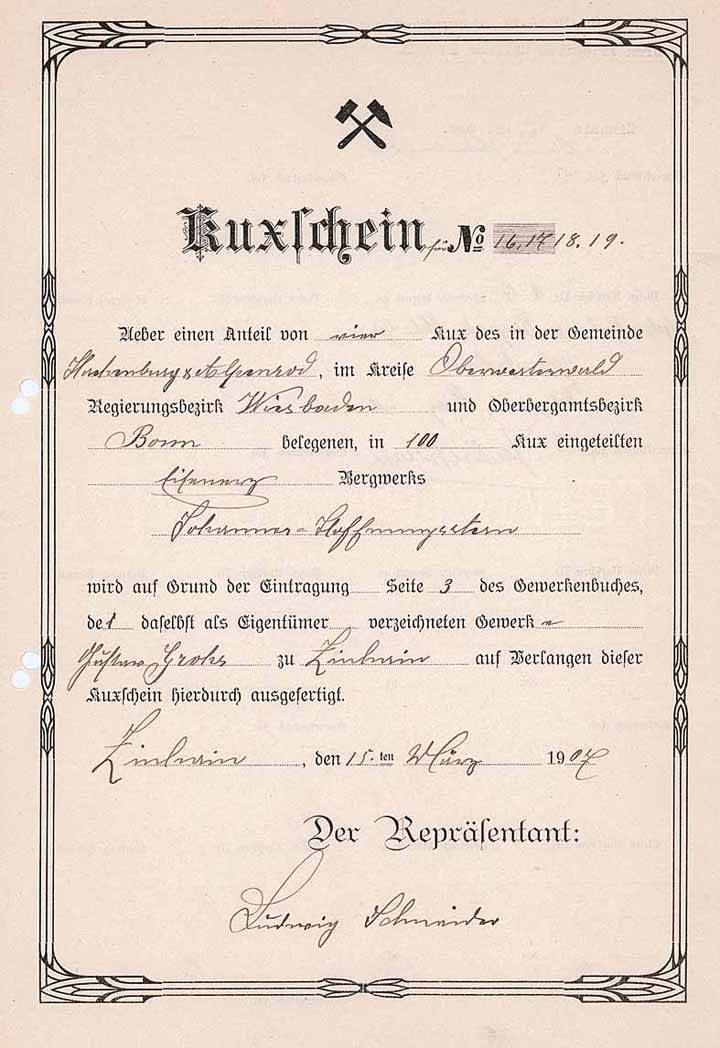 Kuxschein für No 16, 17 18. 19.
Ueber einen Anteil von vier Kux des in der Gemeinde
Hachenburg & Alpenrod, im Kreise Oberwesterwald
Regierungsbezirk Wiesbaden und Oberbergamtsbezirk
Bonn belegenen, in 100 Kux eingeteilten
Eisenerz Bergwerks
Johannes-Hoffnungsstern
wird auf Grund der Eintragung Seite 3 des Gewerkenbuches,
de daselbst als Eigentümer verzeichneten Gewerk
Gustav zu Zinhain auf Verlangen dieser
Kuxschein hierdurch ausgefertigt.
Zinhain, den 15.ten März 1907
Der Repräsentant:
Ludwig Schneider